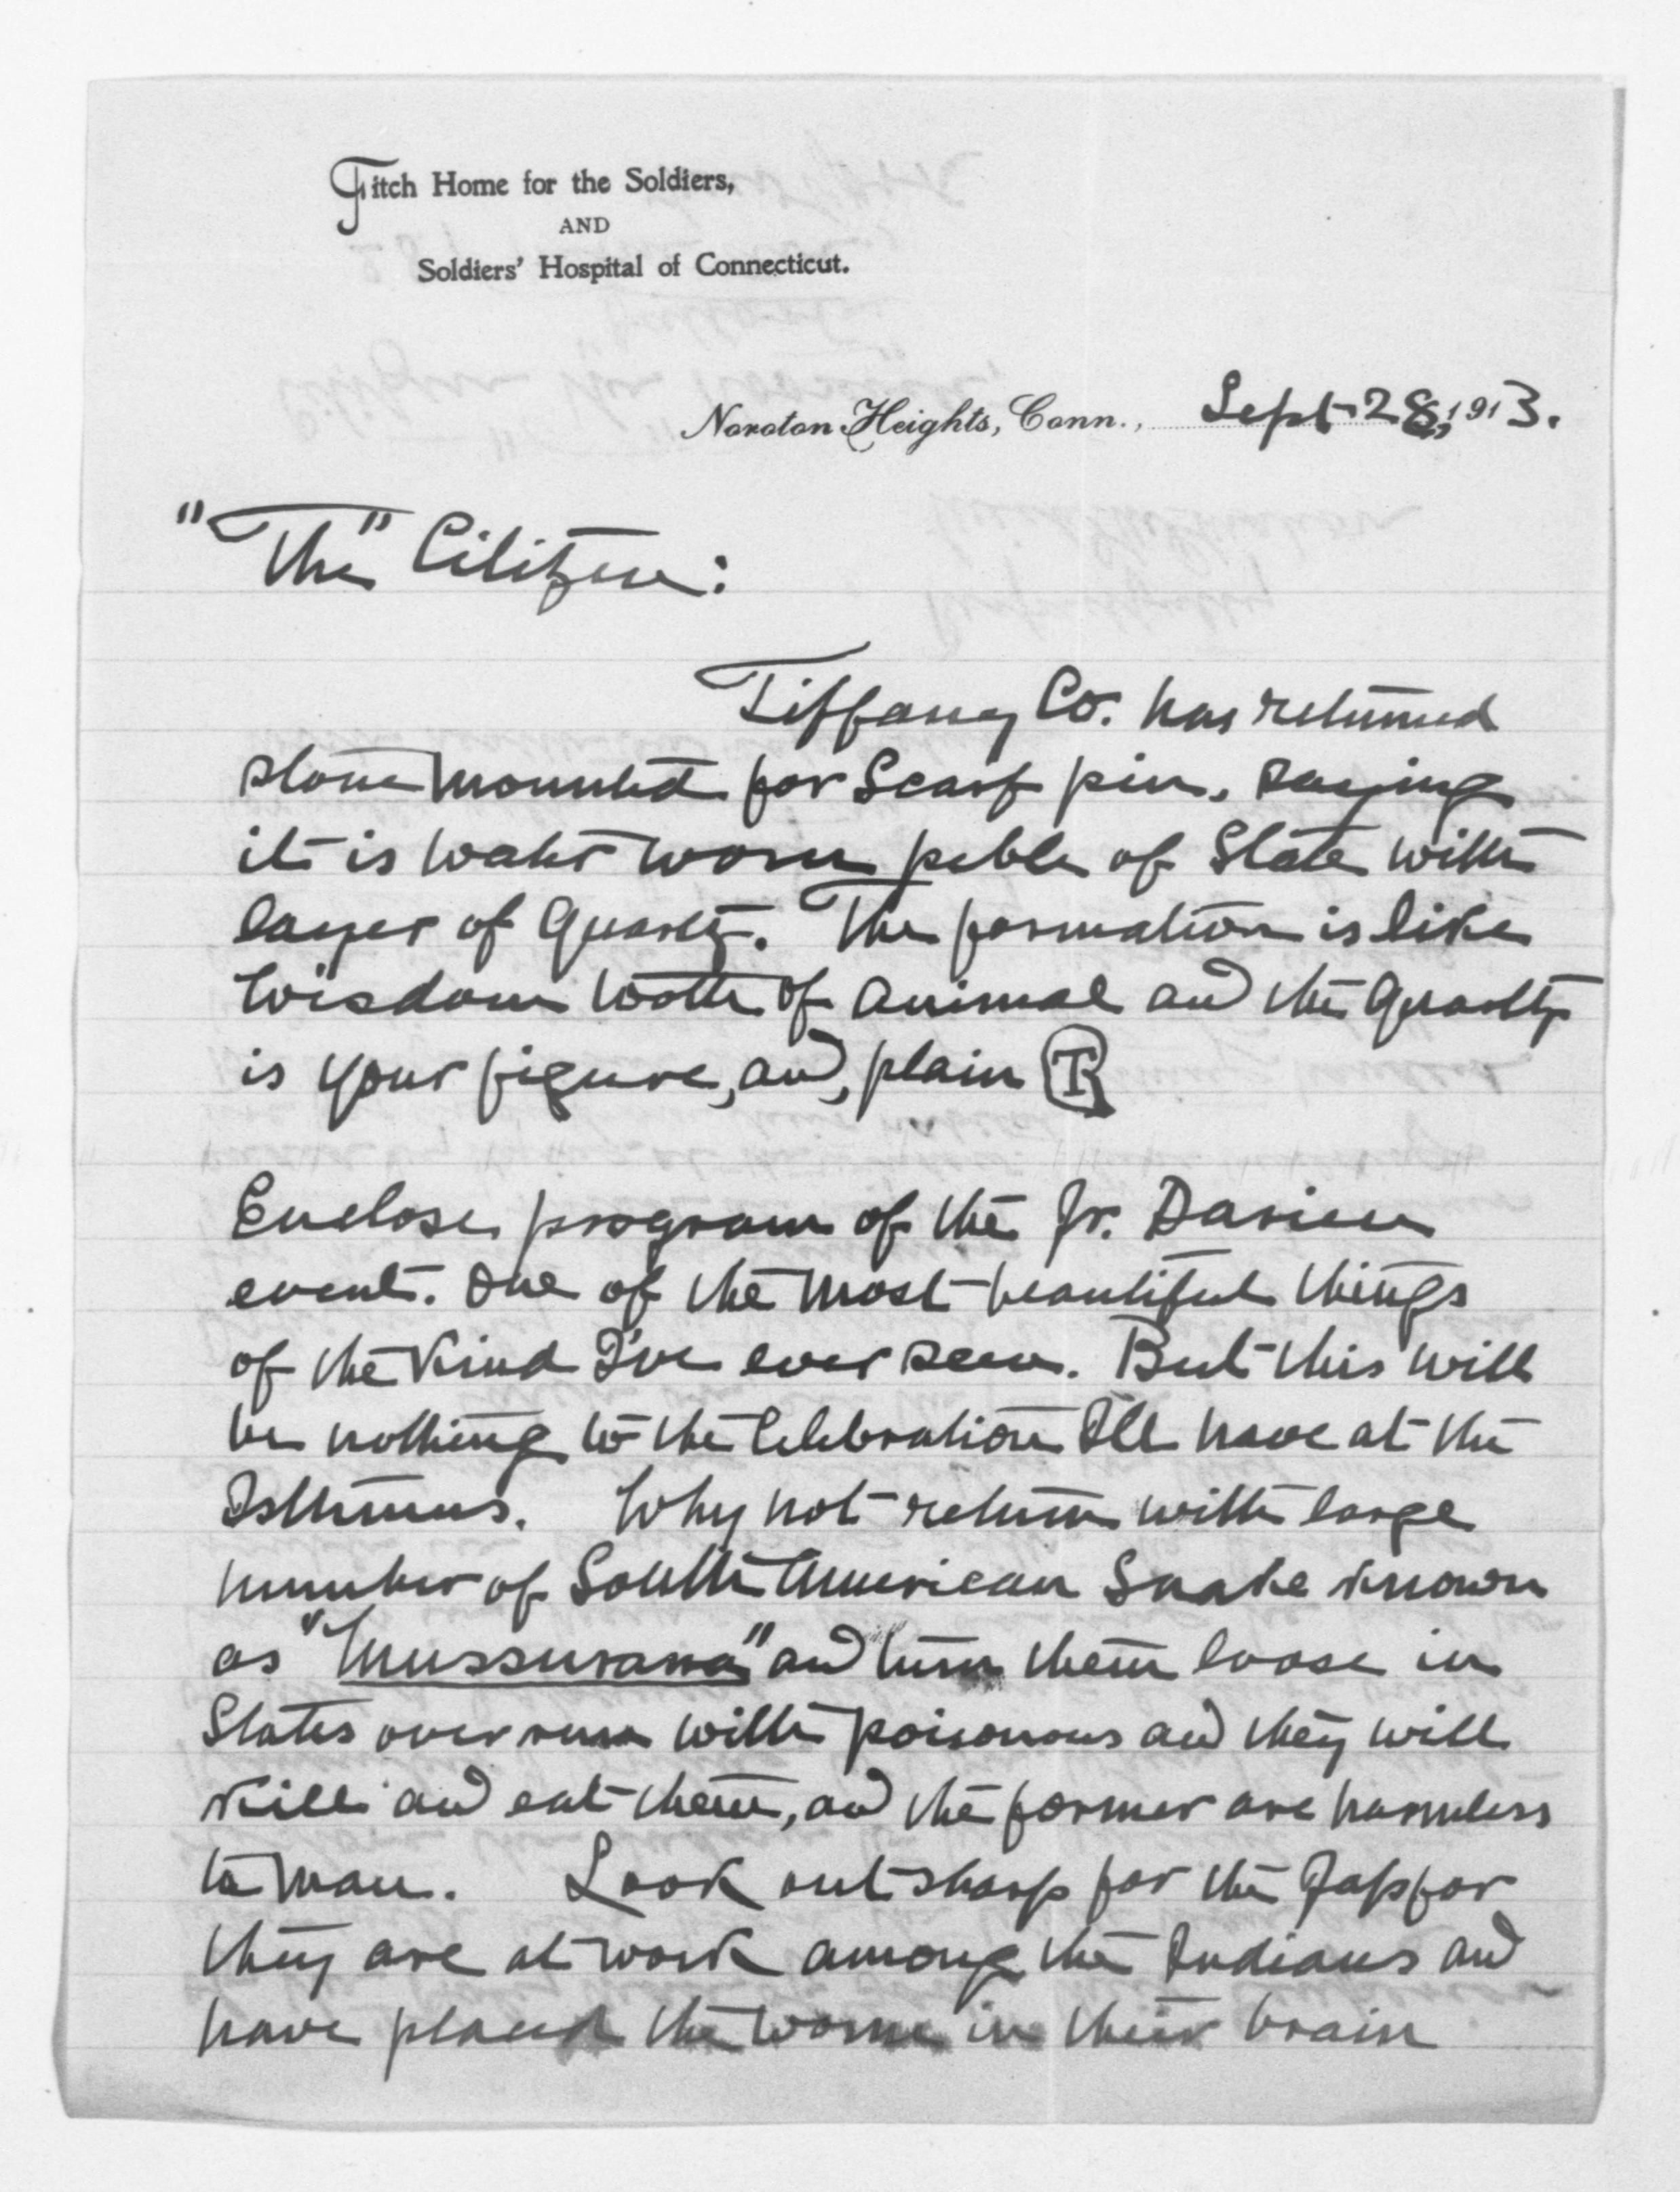 Fitch Home for the Soldiers,
AND
Soldiers' Hospital of Connecticut.
Noroton Heights, Conn., Sept 28, 1913.
"The" Citizen:
Tiffany Co. has returned
stone mounted for Scarf pin, saying
it is water worn peble of Slate with
layer of Quartz. The formation is like
Wisdom tooth of animal and the Quartz
is your figure, and, plain TR
Enclose program of the Jr. Darien
event. One of the most beautiful things
of the Kind I've ever seen. But this will
be nothing to the Celebration I'll have at the
Isthmus. Why not return with large
number of South American Snake known
as "Mussurana" and turn them loose in
States over run with poisonous and they will
Kill and eat them, and the former are harmless
to man. Look out sharp for the Japs for
they are at work among the Indians and
have placed the worm in their brain